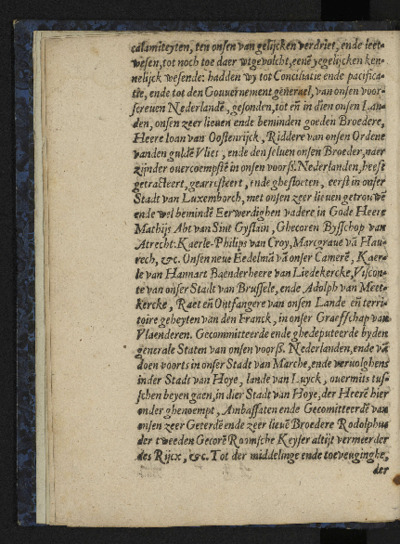 calamiteyten, ten onsen van gelijcken verdriet, ende leet-
wesen, tot noch toe daer wtgevolcht, eenē yegelijcken ken-
nelijck wesende: hadden wy tot Conciliatie ende pacifica-
tie, ende tot den Gouuernement generael, van onsen voor-
screuen Nederlandē, gesonden, tot eñ in dien onsen Lan-
den, onsen zeer lieuen ende beminden goeden Broedere,
Heere Ioan van Oostenrijck, Riddere van onsen Ordene
vanden guldē Vlies, ende den seluen onsen Broeder, naer
zijnder ouercoempstē in onsen voorß. Nederlanden, heeft
getracteert, gearresteert, ende ghesloten, eerst in onser
Stadt van Luxemborch, met onsen zeer lieuen getrouwē
ende wel bemindē Eerwerdighen vadere in Gode Heere
Mathijs Abt van Sint Gyslain, Ghecoren Bysschop van
Atrecht: Kaerle-Philips van Croy, Marcgraue vā Hau-
rech, &c. Onsen neue Eedelmā vā onser Camerē, Kaer-
le van Hannart Baenderheere van Liedekercke, Viscon-
te van onser Stadt van Brussele, ende Adolph van Meet-
kercke, Raet eñ Ontfangere van onsen Lande eñ terri-
toire geheyten van den Franck, in onser Graefschap van
Vlaenderen. Gecommitteerde ende ghedeputeerde byden
generale Staten van onsen voorß. Nederlanden, ende vā
doen voorts in onser Stadt van Marche, ende veruolghens
inder Stadt van Hoye, lande van Luyck, ouermits tus-
schen beyen gaen, in dier Stadt van Hoye, der Heerē hier
onder ghenoempt, Ambassaten ende Gecomitteerdē van
onsen zeer Geterdē ende zeer lieuē Broedere Rodolphus
der tweeden Gecorē Roomsche Keyser altijt vermeerder
des Rijcx, &c. Tot der middelinge ende toeveuginghe,
der